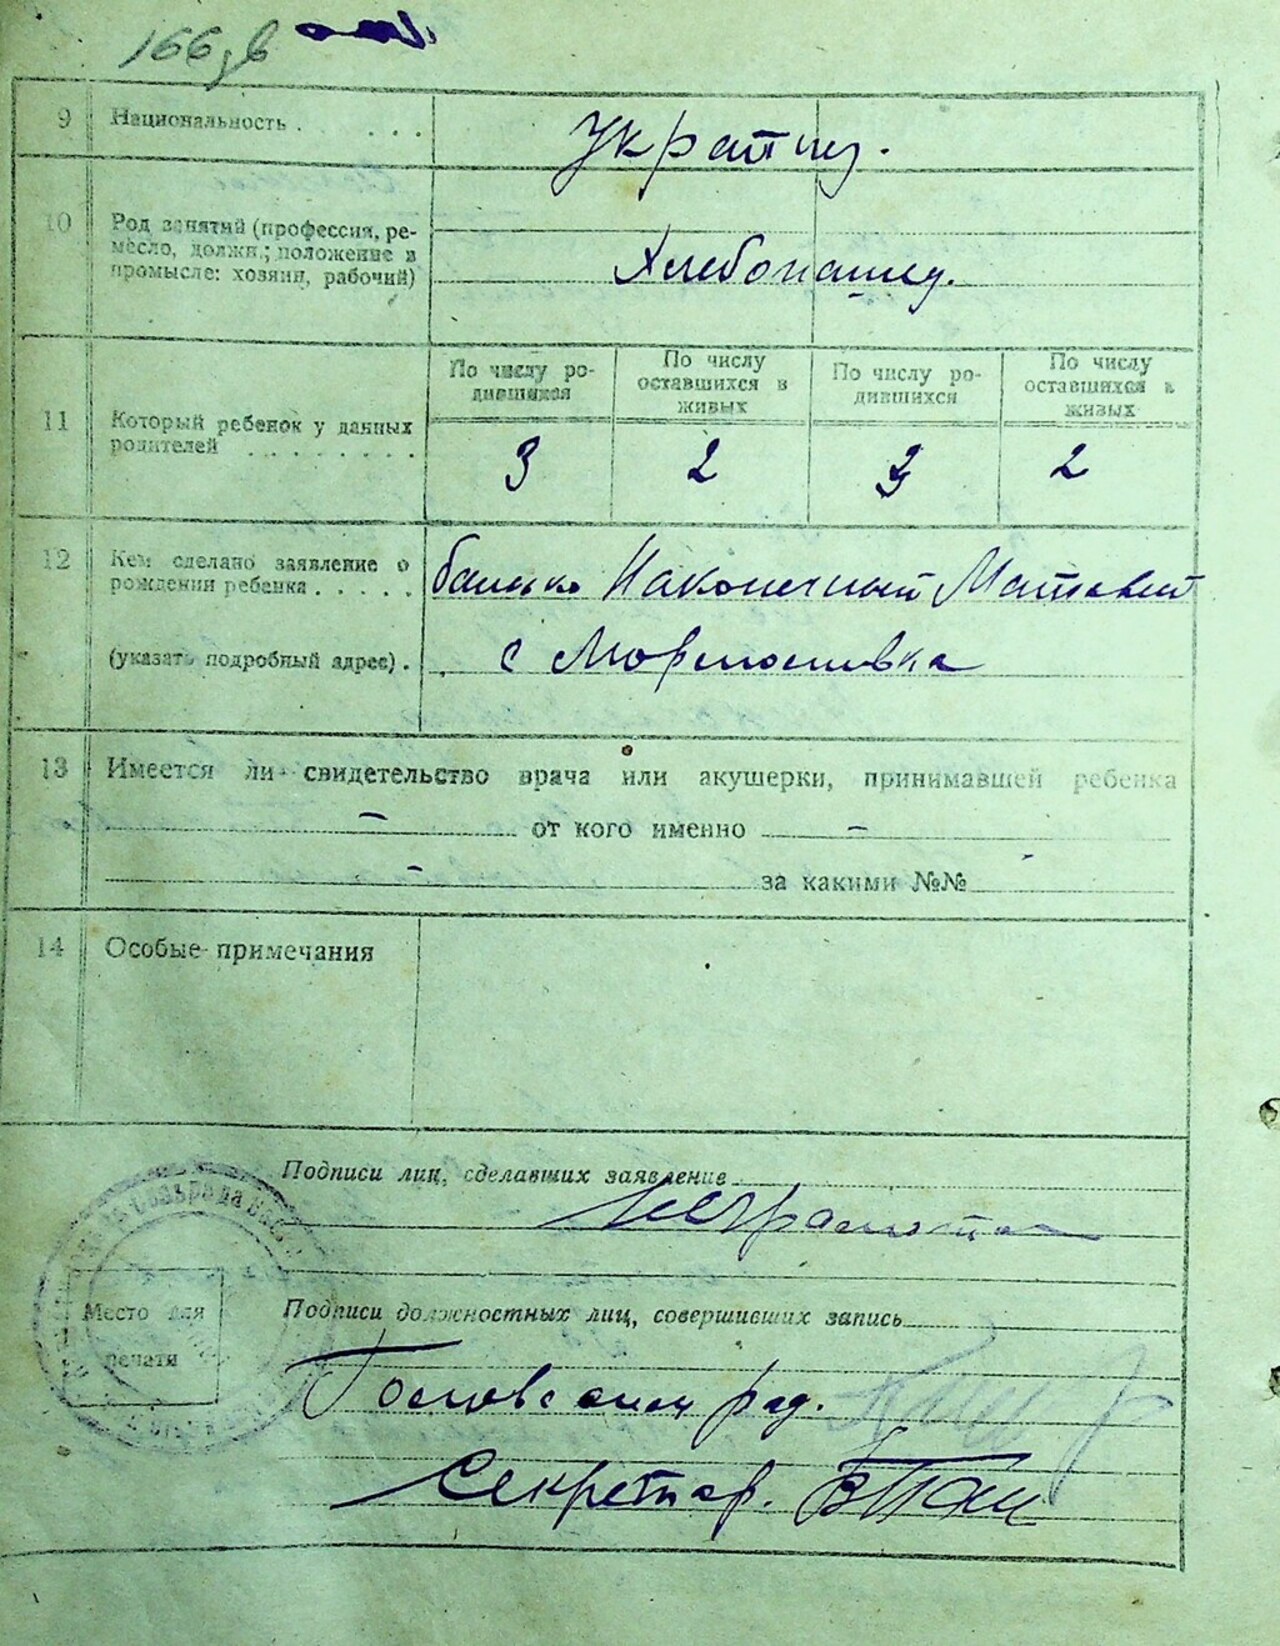 166зв
9 Национальность . . . . Украпнц.
10 Род занятий (профессия, ре-
месло, должн.; положение в
промысле: хозяин, рабочий)
Хлебопашец.
По числу ро-
дившихся
По числу
оставшихся в
живых
По числу ро-
дившихся
По числу
оставшихся в
живых
11 Который ребенок у данных
родителей . . . . . . . .
3 2 3 2
12 Кем сделано заявление о
рождении ребенка . . . . .
батько Наконечный Матвей
(указать подробный адрес) .
с
13 Имеется ли свидетельство врача или акушерки, принимавшей ребенка
— от кого именно —
— за какими №№ -
14 Особые примечания
Подписи лиц, сделавших заявление
Место для
печати
Подписи должностных лиц, совершивших запись
Голова рад.
Секретар.